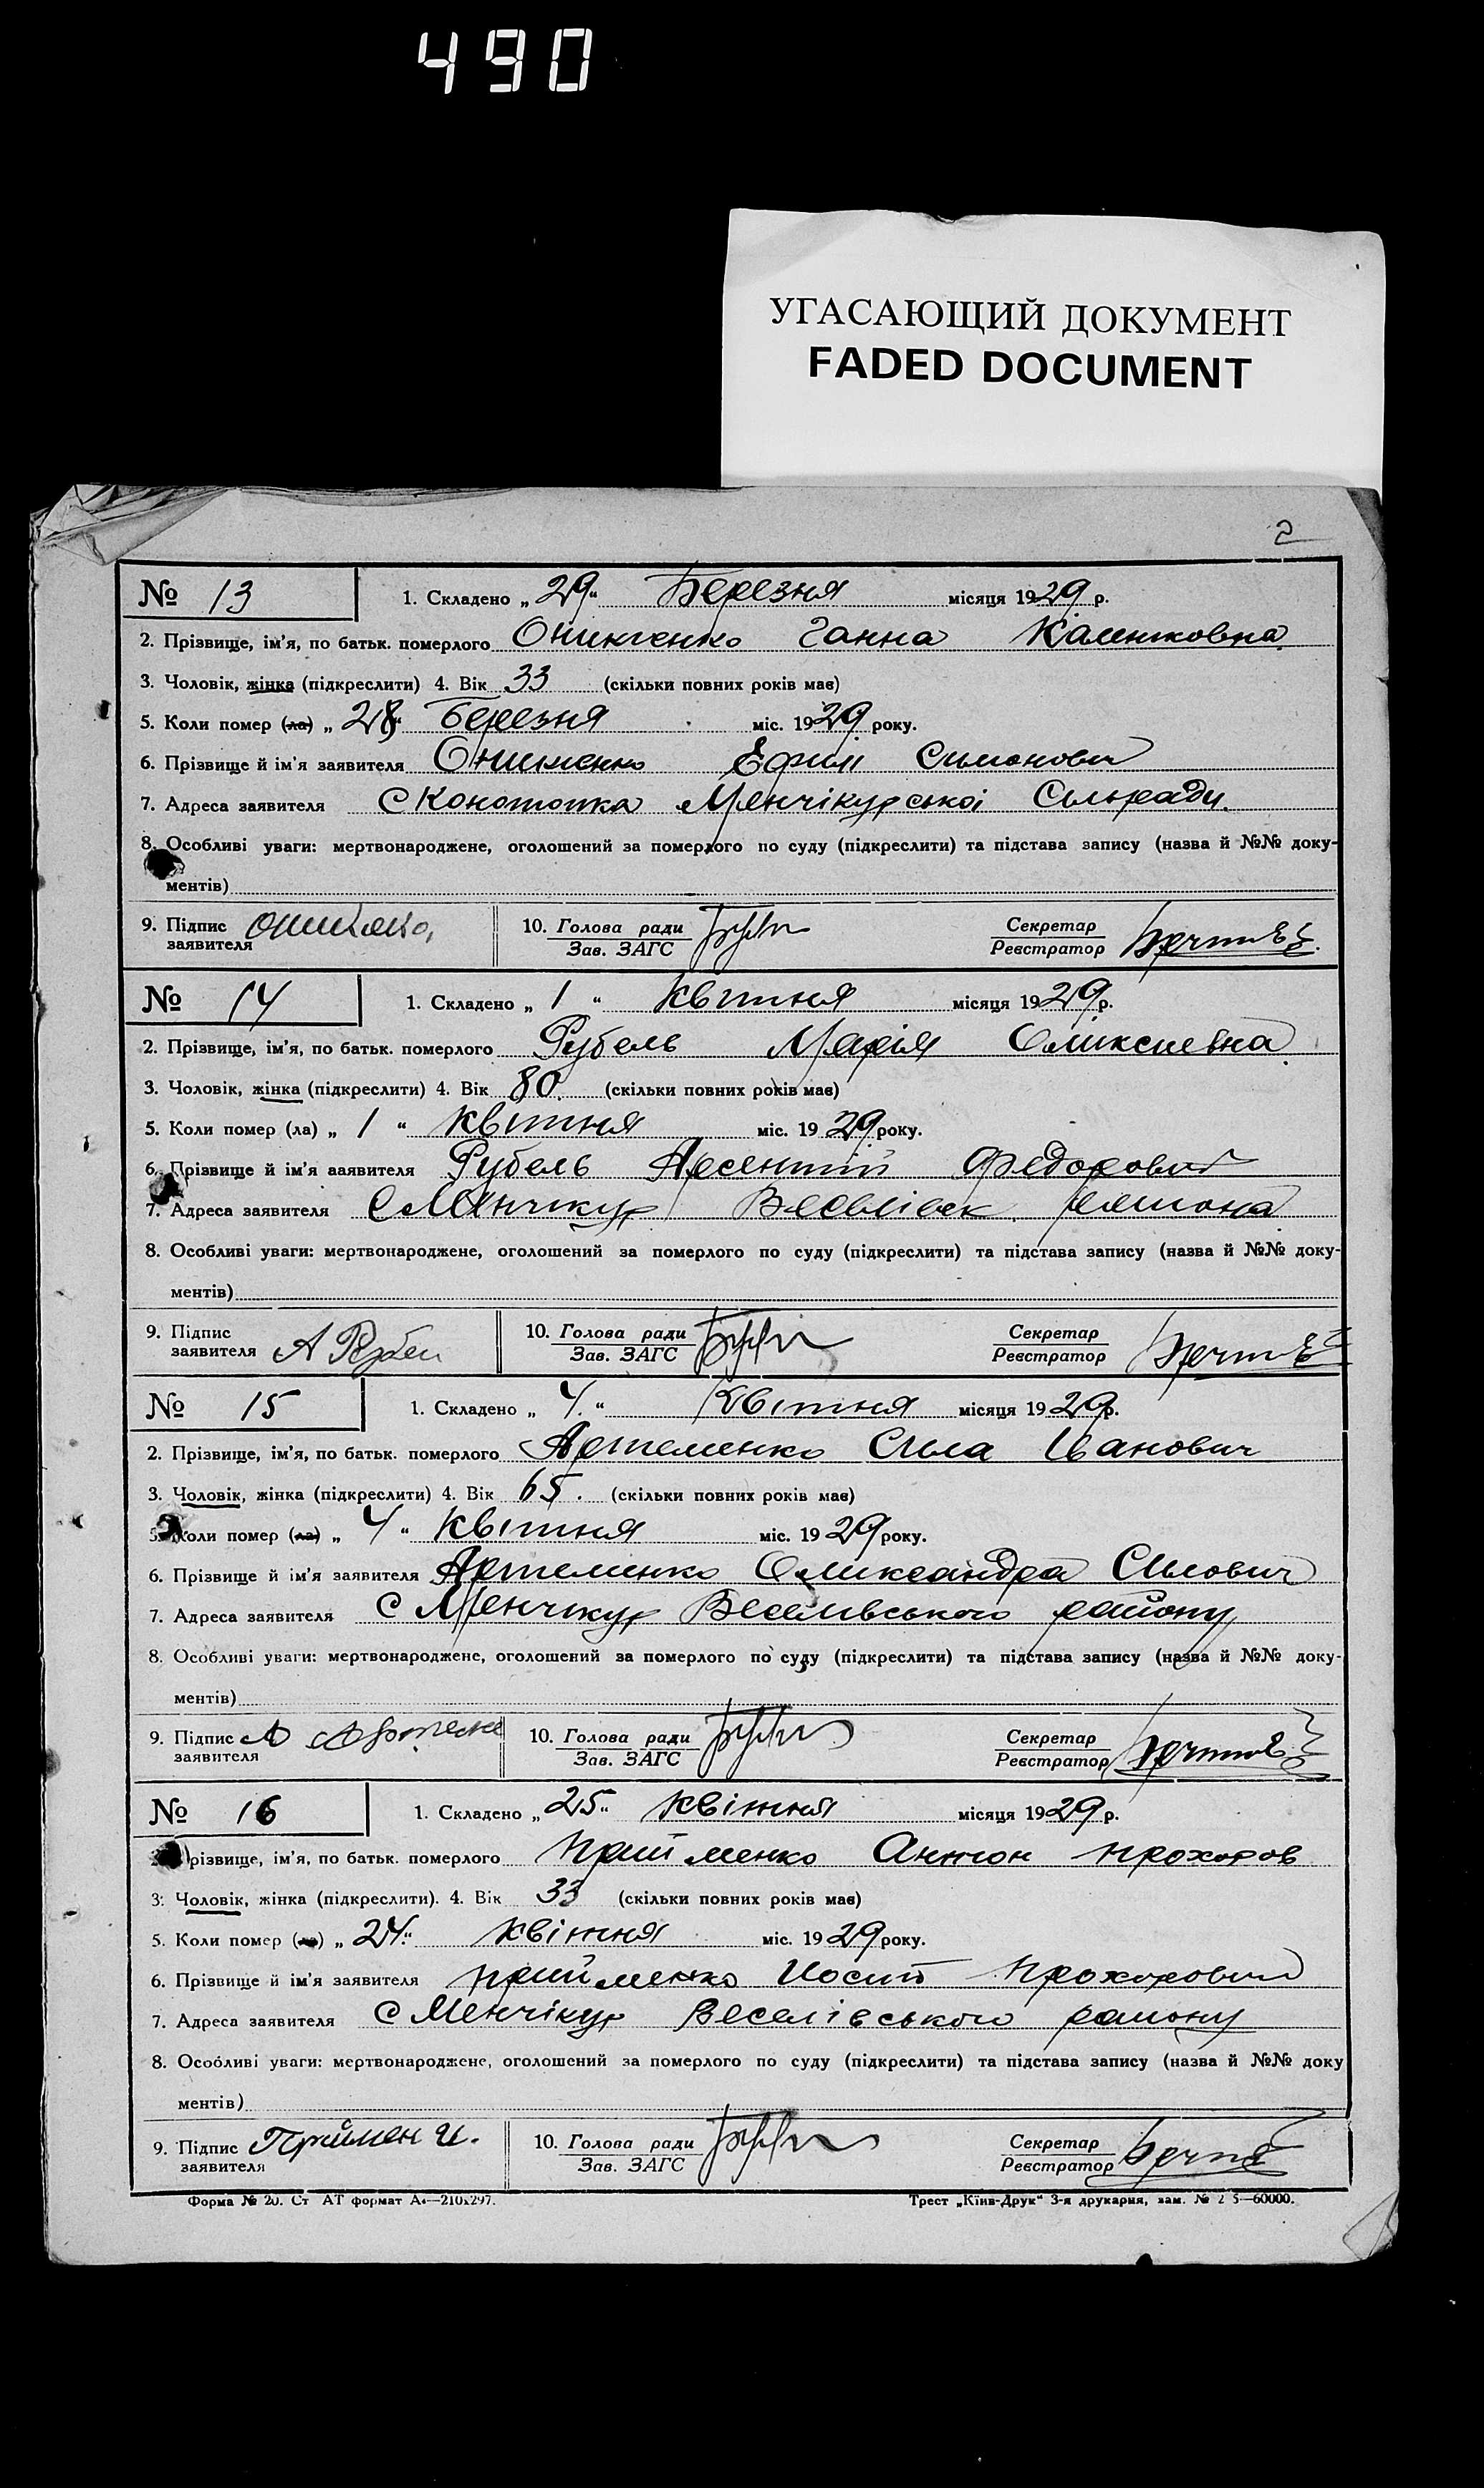 490
УГАСАЮЩИЙ ДОКУМЕНТ
FADED DOCUMENT
2
№ 13 1. Складено „ 29 “ Березня місяця 1929 р.
2. Прізвище, ім'я, по батьк. померлого Ганна
3. Чоловік, жінка (підкреслити) 4. Вік 33 (скільки повних років має)
5. Коли помер (ла) „ 28 “ Березня міс. 1929 року.
6. Прізвище й ім'я заявителя Онищенко Ефим Симонович
7. Адреса заявителя с Конотопка Менчікурської Сільради.
8. Особливі уваги: мертвонароджене, оголошений за померлого по суду (підкреслити) та підстава запису (назва й №№ доку-
ментів)
9. Підпис заявителя 10. Голова ради Зав. ЗАГС Секретар Реєстратор
№ 14 1. Складено „ 1 “ Квітня місяця 1929 р.
2. Прізвище, ім'я, по батьк. померлого Рубель Марія
3. Чоловік, жінка (підкреслити) 4. Вік 80. (скільки повних років має)
5. Коли помер (ла) „ 1 “ Квітня міс. 1929 року.
6. Прізвище й ім'я заявителя Рубель Арсентій Федорович
7. Адреса заявителя с Менчикур Веселівськ.
8. Особливі уваги: мертвонароджене, оголошений за померлого по суду (підкреслити) та підстава запису (назва й №№ доку-
ментів)
9. Підпис заявителя А Рубель 10. Голова ради Зав. ЗАГС Секретар Реєстратор
№ 15 1. Складено „ 4. “ Квітня місяця 1929 р.
2. Прізвище, ім'я, по батьк. померлого Артеменко Сила Іванович
3. Чоловік, жінка (підкреслити) 4. Вік 65. (скільки повних років має)
5. Коли помер (ла) „ 4 “ Квітня міс. 1929 року.
6. Прізвище й ім'я заявителя Артеменко Олександра Силович
7. Адреса заявителя с Менчикур Веселивського району
8. Особливі уваги: мертвонароджене, оголошений за померлого по суду (підкреслити) та підстава запису (назва й №№ доку-
ментів)
9. Підпис заявителя 10. Голова ради Зав. ЗАГС Секретар Реєстратор
№ 16 1. Складено „ 25 “ Квітня місяця 1929 р.
різвище, ім'я, по батьк. померлого Прийменко Антон Прохоров
3. Чоловік, жінка (підкреслити). 4. Вік 33 (скільки повних років має)
5. Коли помер (ла) „ 24. “ Квітня міс. 1929 року.
6. Прізвище й ім'я заявителя Прийменко Иосип Прохорович
7. Адреса заявителя с Менчікур Веселівського району
8. Особливі уваги: мертвонароджене, оголошений за померлого по суду (підкреслити) та підстава запису (назва й №№ доку
ментів)
9. Підпис заявителя Приймен И. 10. Голова ради Зав. ЗАГС Секретар Реєстратор
Форма № 20. Ст АТ формат А4—210х297. Трест „Київ-Друк“ 3-я друкарня, зам. № 2 5—60000.